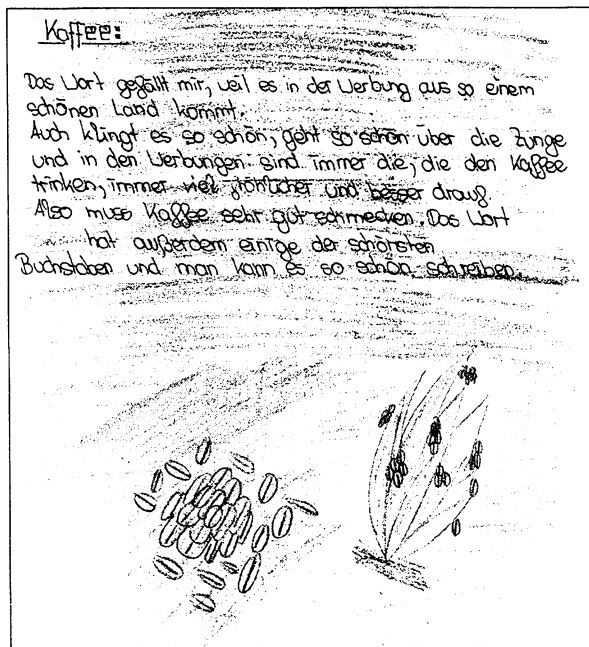 Kaffee:
Das Wort gefällt mir, weil es in der Werbung aus so einem
schönen Land kommt.
Auch klingt es so schön, geht so schön über die Zunge
und in den Werbungen sind immer die, die den Kaffee
trinken, immer viel fröhlicher und besser drauf.
Also muss Kaffee sehr gut schmecken. Das Wort
hat außerdem einige der schönsten
Buchstaben und man kann es so schön schreiben.